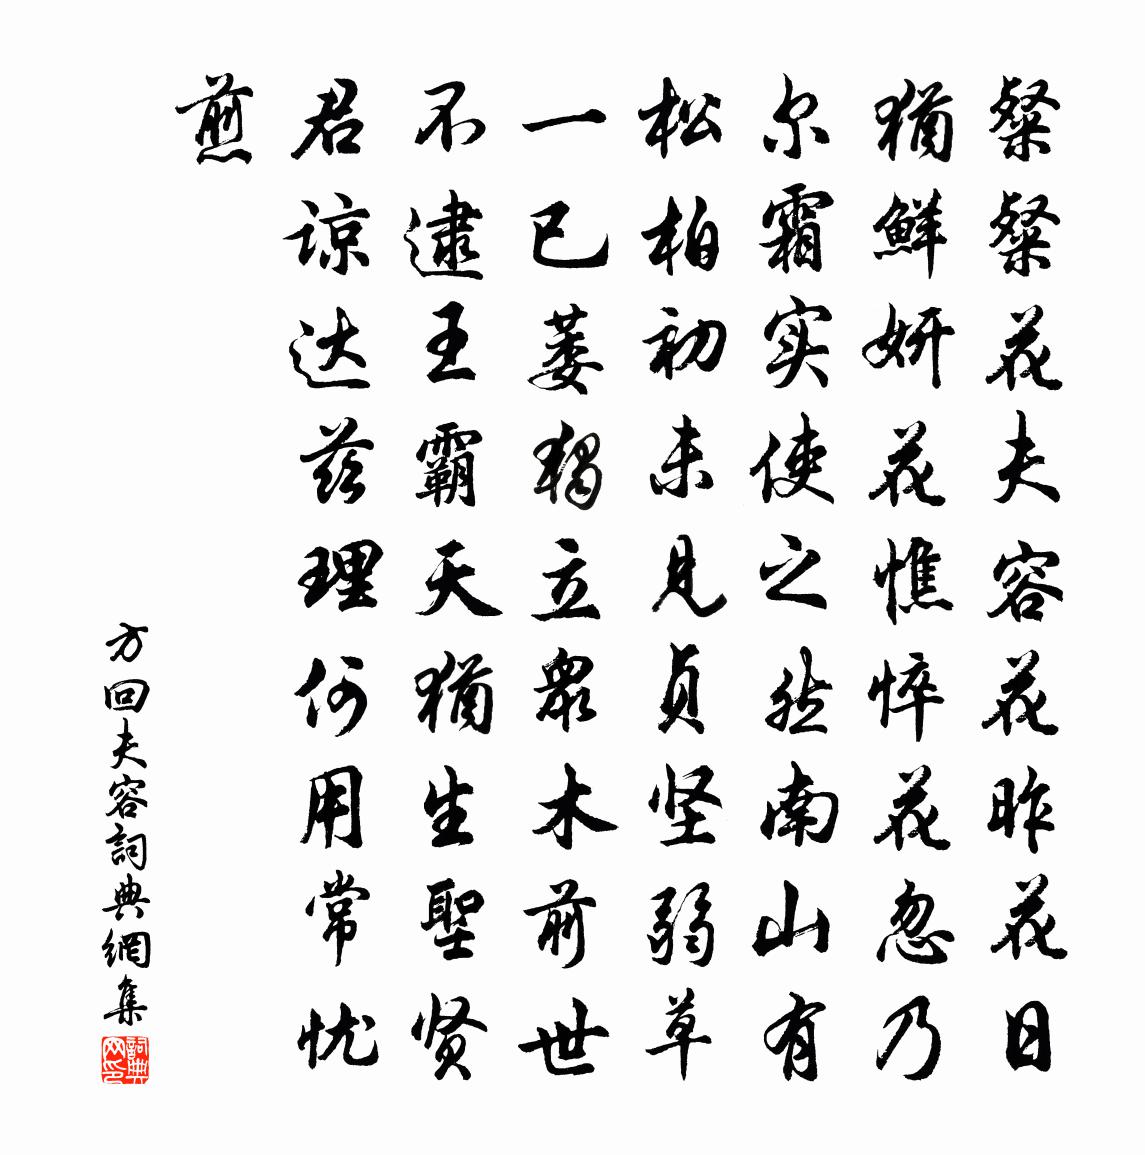 粲粲花夫容花昨花日
猶鮮妍花憔悴花忽乃
尔霜实使之然南山有
松柏初未見貞坚弱草
一已萎独立眾木前世
不逮王霸天猶生聖贤
君谅达兹理何用常忧
煎
方回夫容詞典網集
詞典网印